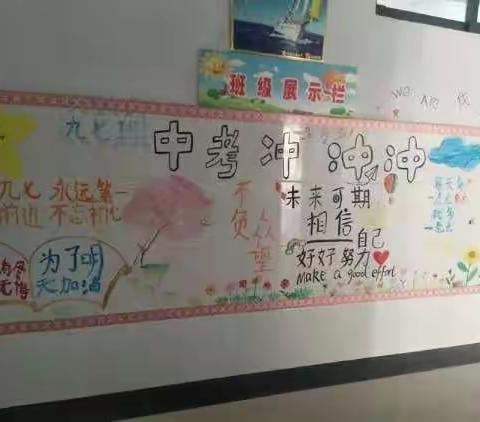 班级展示栏
We are 伐
九七班
中考冲冲冲
九七 永远第一
前进 不忘初心
为了明
天加油
不
负
众
望
未来可期
相信
自己
好好努力
make a good effort
每天多
一点点